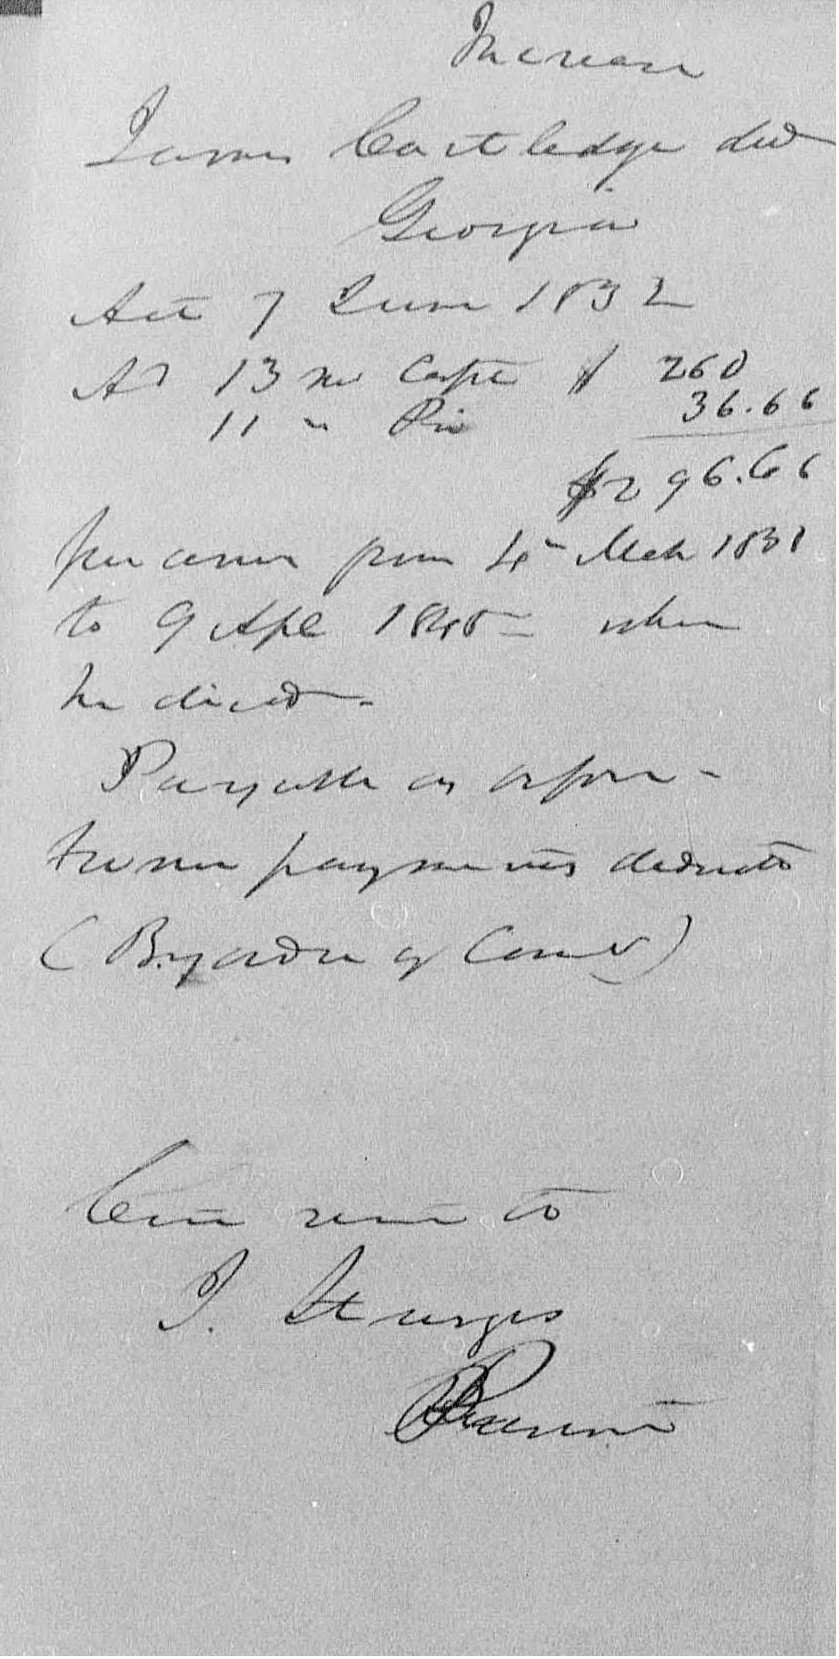 Increase
James Cartledge decd
Georgia
Act 7 June 1832
As 13 mo Capt $ 260
11 " Pri 36.66
$296.66
per annm from 4th Mch 1831
to 9 Apl 1845 when
he died.
Payable as before -
former payments deducted
(By order of Comr)
Cert sent to
J. Sturgis
Present